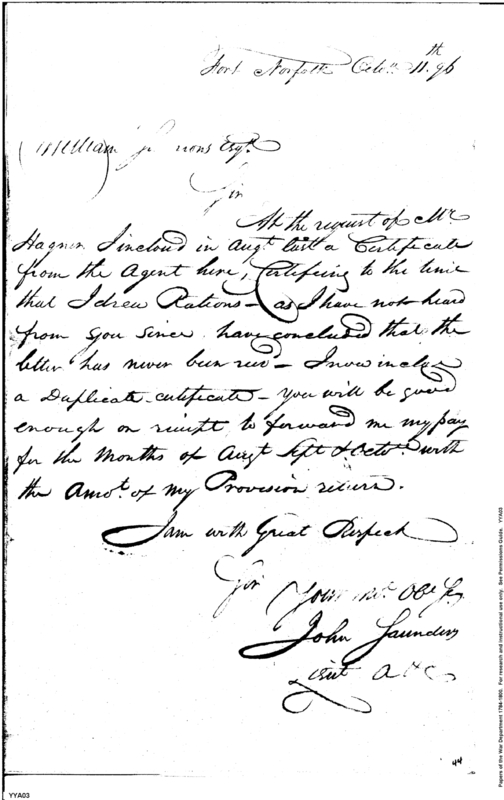 Fort Norfolk Octor. 11th. 96
William Simmons Esqr.
Sir
At the request of Mr.
Hagner I inclosd in Augt. last a Certificate
from the Agent here, Certifeing to the time
that I drew Rations - as I have not heard
from you since have concluded that the
letter has never been recd - I now inclose
a Duplicate certificate - you will be good
enough on receipt to forward me my pay
for the Months of Augt Sept & Octor. with
the Amot. of my Provision return.
I am with Great Respect
Sir
Your mot. Obt Sr.
John Saunders
Lieut A & E
44
YYA03
Papers of the War Department 1784-1800. For research and instructional use only. See Permissions Guide. YYA03